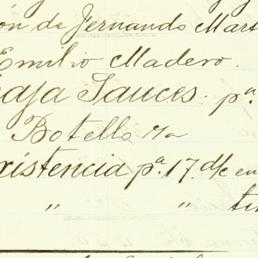 ón de Fernando Mart
Emilio Madero.
aja Sauces. pª
Botello
xistencia pª 17 d/c en
" " tu